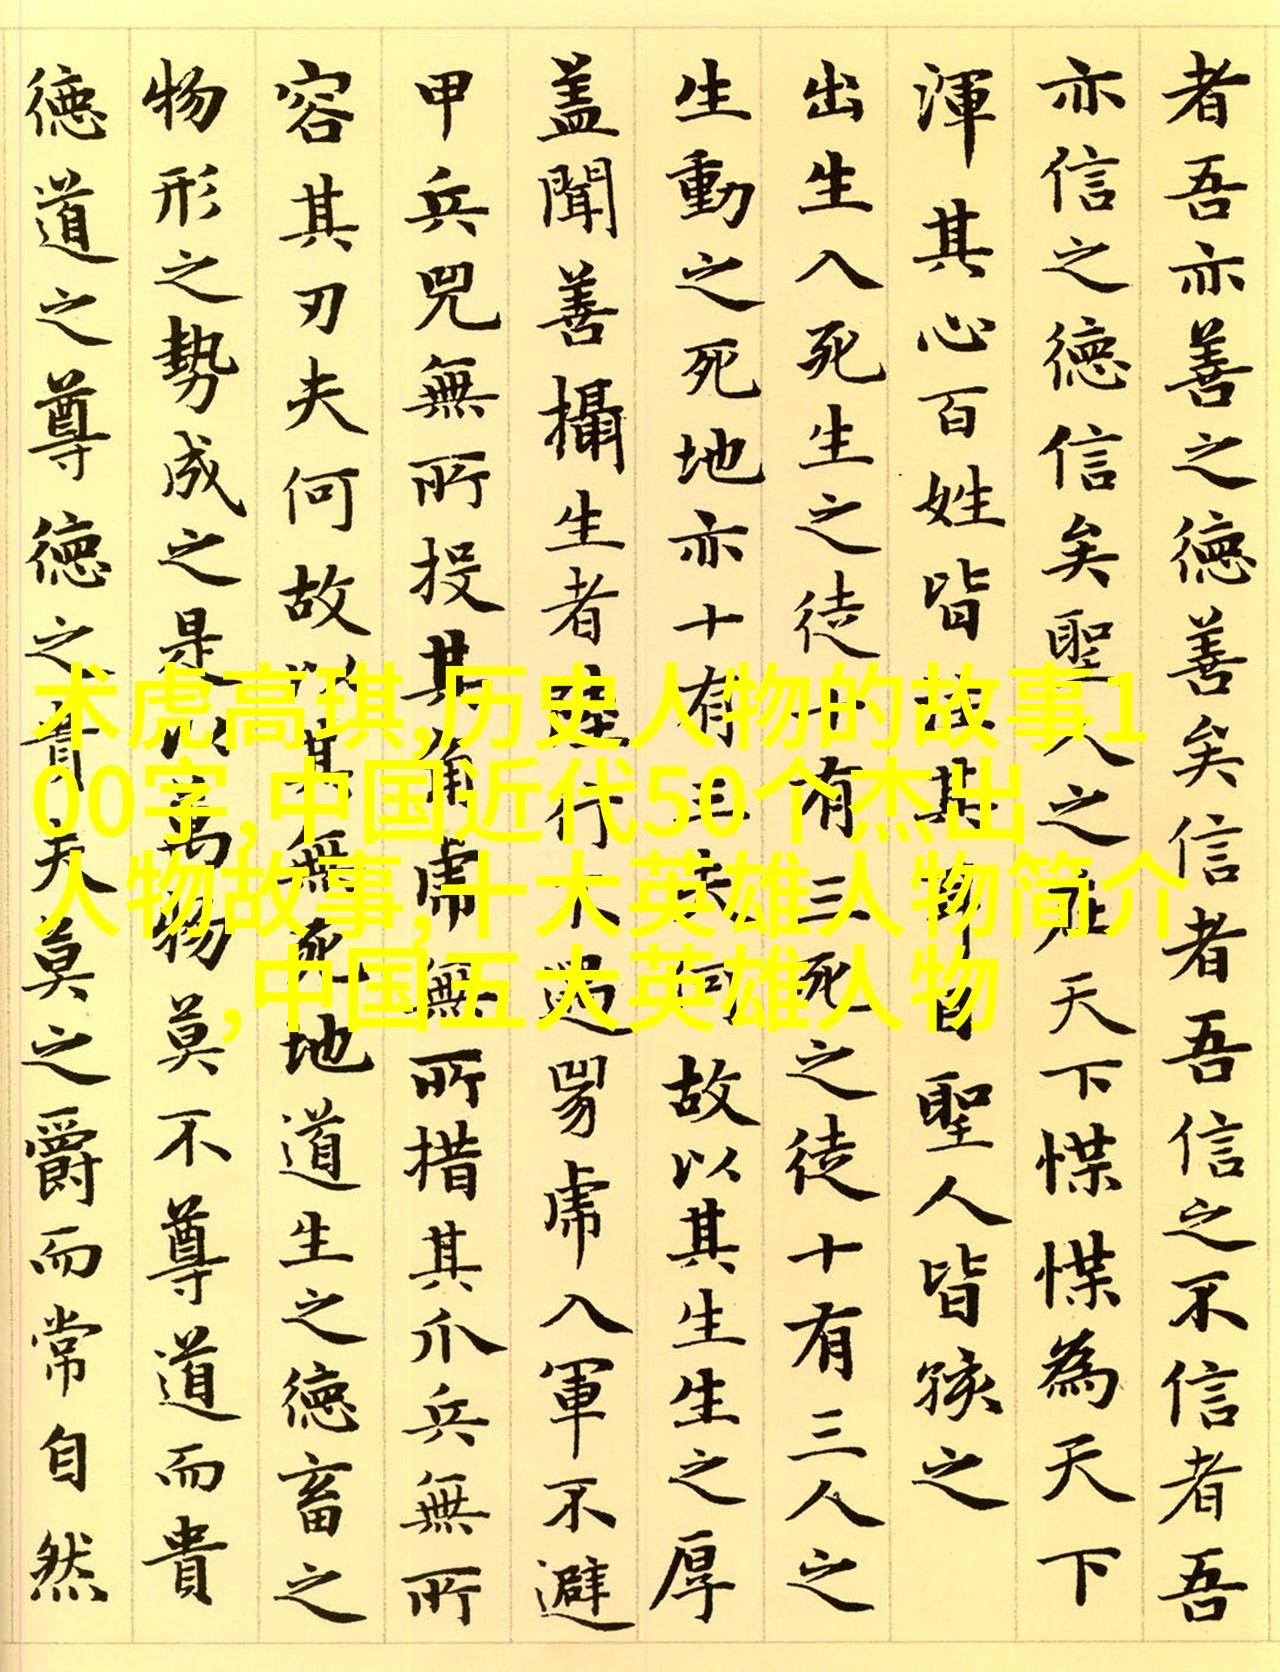 者吾亦善之徳善矣信者吾信之不信者吾
亦信之徳信矣聖人之在天下惵惵為天下
渾其心百姓皆其耳目聖人皆孩之
出生入死生之徒十有三死之徒十有三人之
生動之死地亦十有三夫何故以其生生之厚
蓋聞善攝生者陸行不遇兕虎入軍不避
甲兵兕無所投其角虎無所措其爪兵無所
容其刃夫何故以其無死地道生之徳畜之
物形之勢成之是以萬物莫不尊道而貴
徳道之尊徳之貴夫莫之爵而常自然
术虎高琪,历史人物的故事1
00字,中国近代50个杰出
人物故事,十大英雄人物简介
,中国五大英雄人物